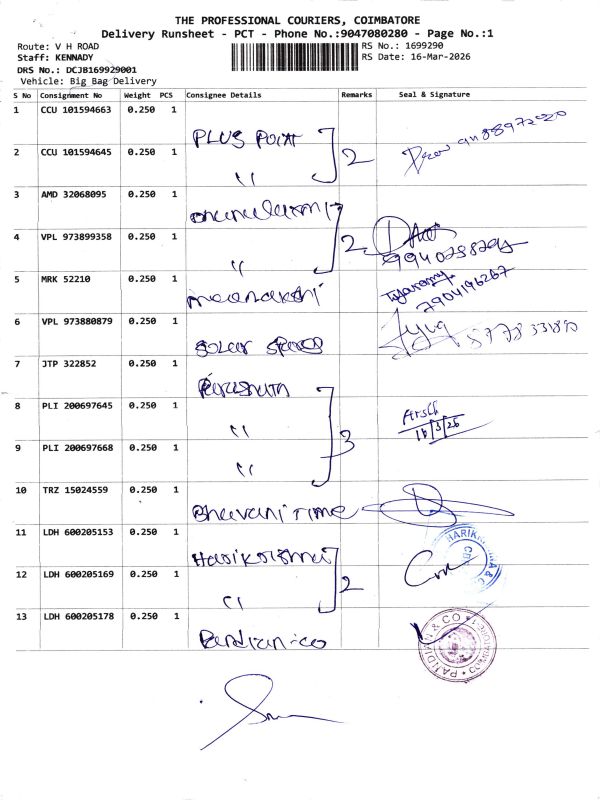 THE PROFESSIONAL COURIERS, COIMBATORE
Delivery Runsheet - PCT - Phone No.:9047080280 - Page No.:1
Route: V H ROAD
RS No.: 1699290
Staff: KENNADY
RS Date: 16-Mar-2026
DRS No.: DCJB169929001
Vehicle: Big Bag Delivery
S No Consignment No Weight PCS Consignee Details Remarks Seal & Signature
1 CCU 101594663 0.250 1
PLUS POINT
2 CCU 101594645 0.250 1
〃 2
3 AMD 32068095 0.250 1
4 VPL 973899358 0.250 1
〃 2
5 MRK 52210 0.250 1
meenakshi 7904196267
6 VPL 973880879 0.250 1
solar
7 JTP 322852 0.250 1
8 PLI 200697645 0.250 1
〃 3
9 PLI 200697668 0.250 1
〃
10 TRZ 15024559 0.250 1
Bhavani
11 LDH 600205153 0.250 1
Harikrishna
12 LDH 600205169 0.250 1
〃 2
13 LDH 600205178 0.250 1
Pandian-co
PANDIAN & CO